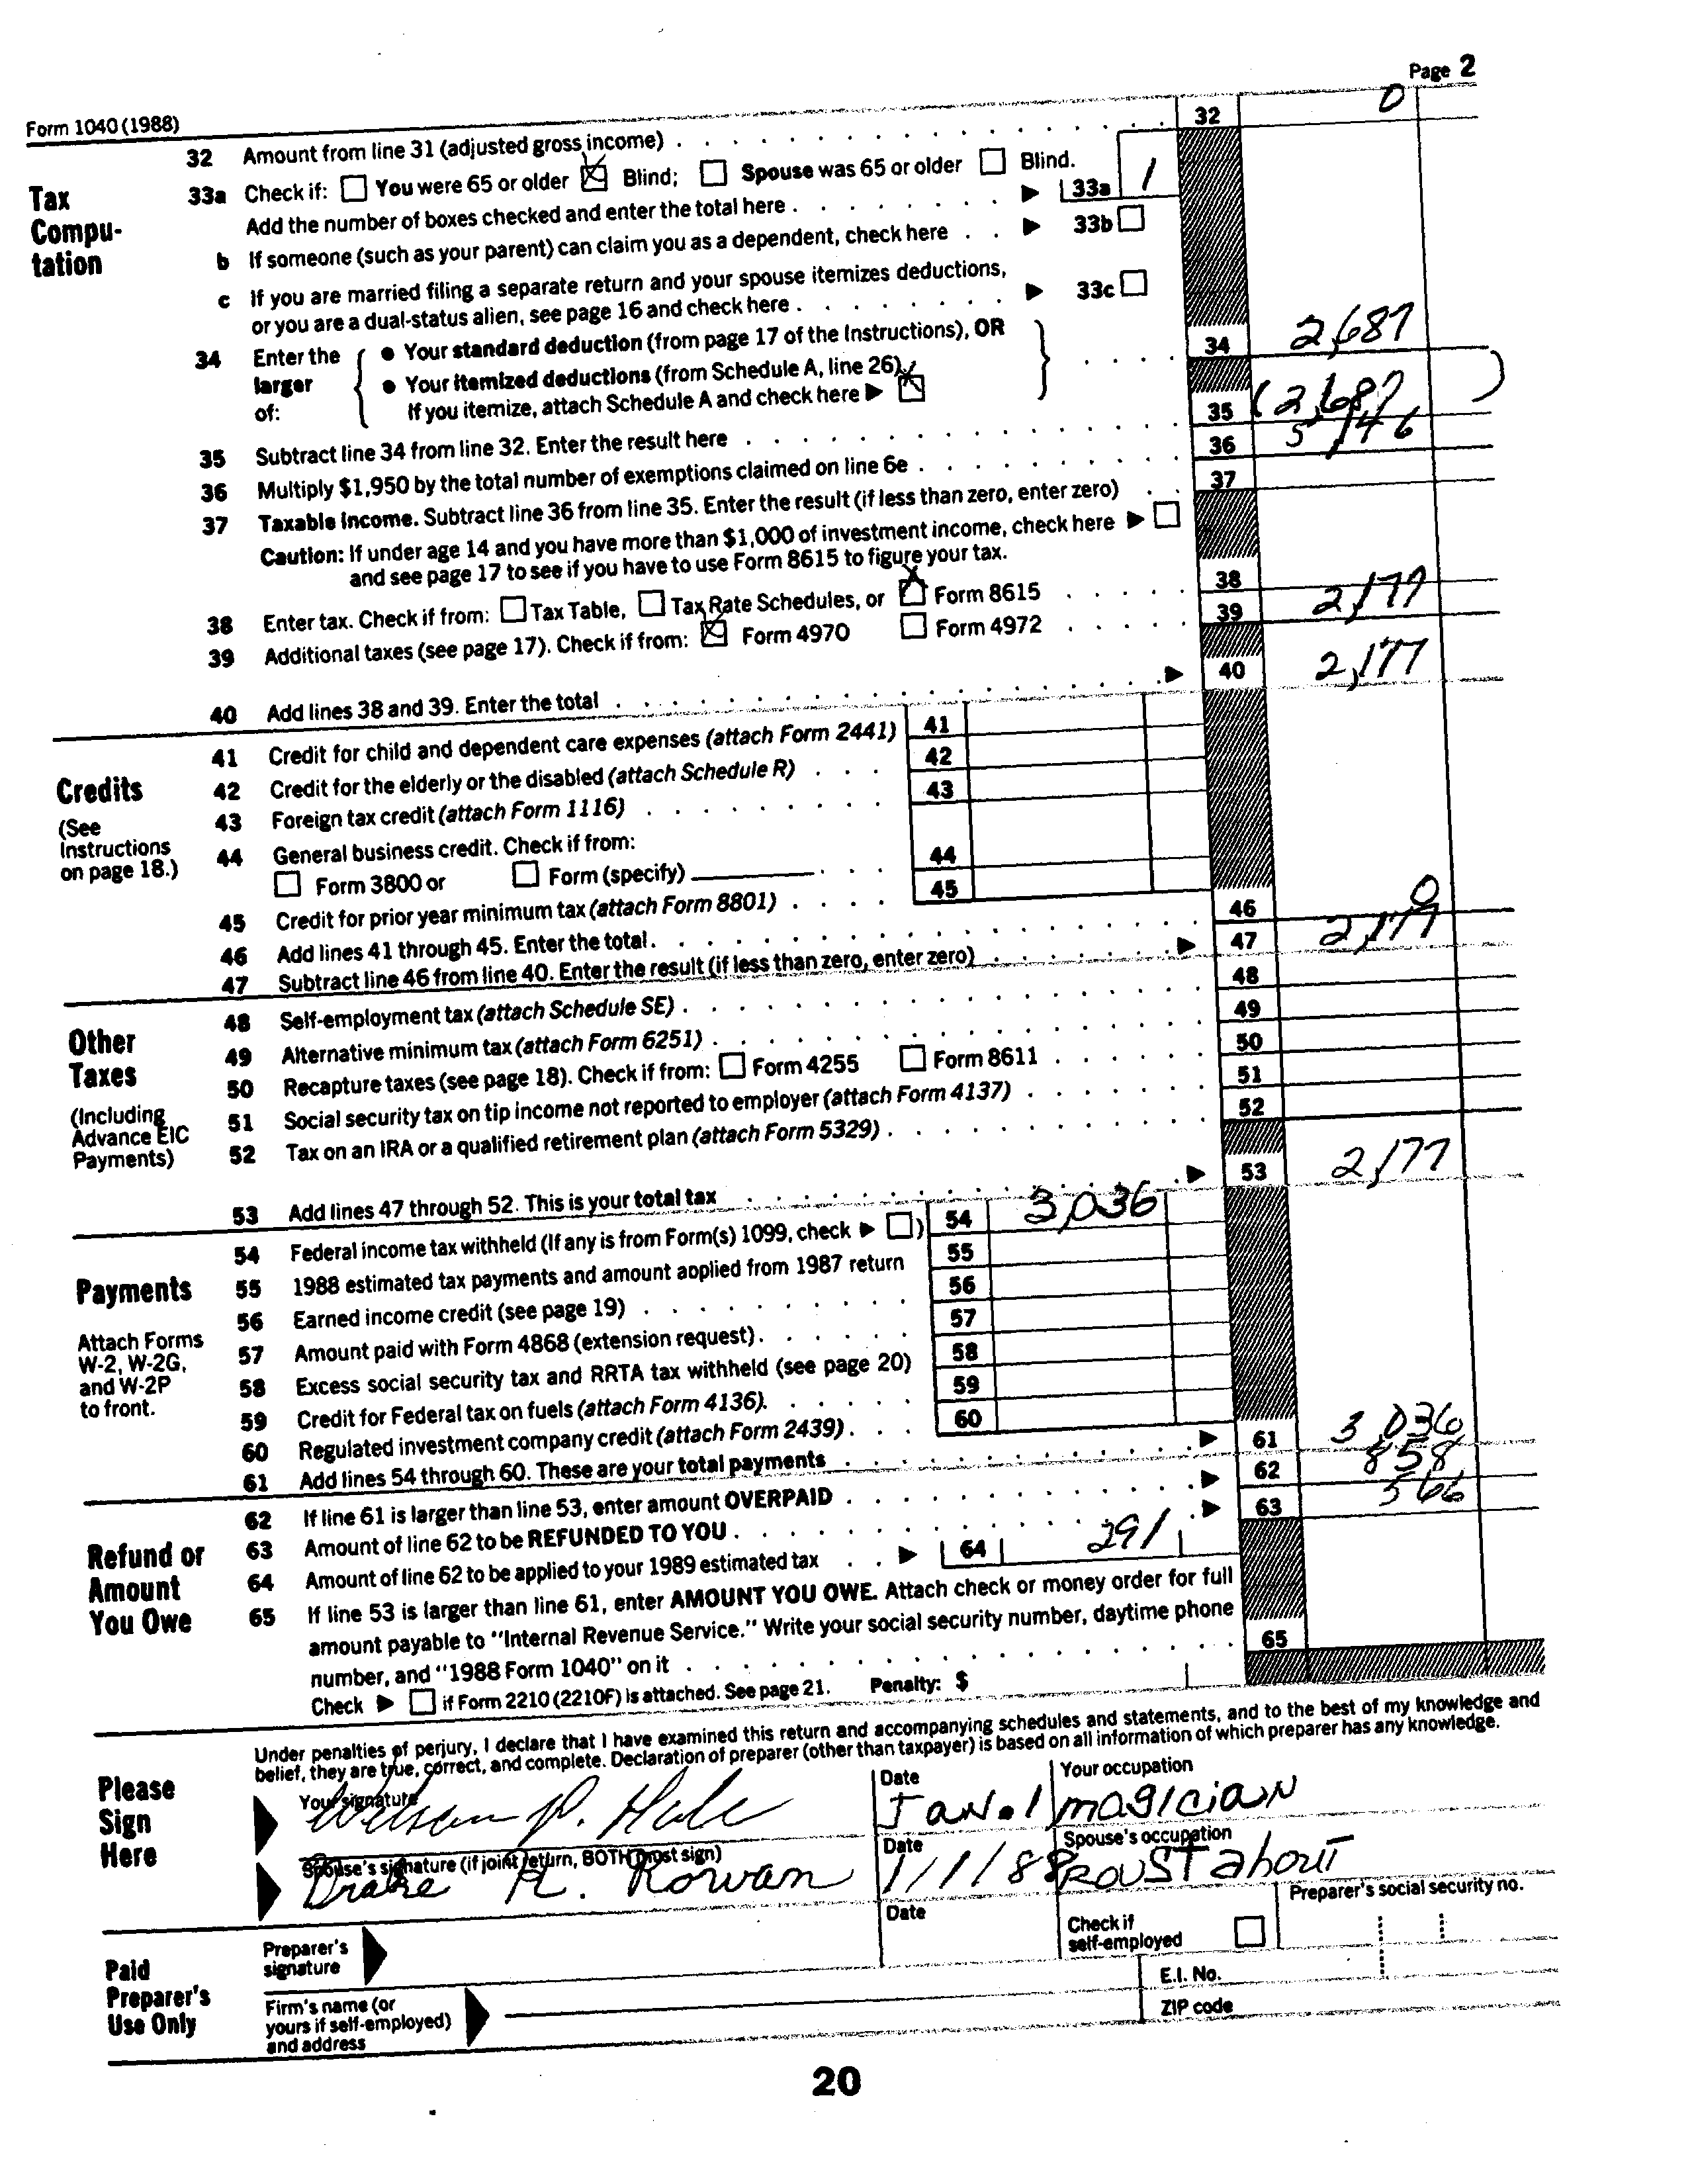 Page 2
Form 1040 (1988)
32 Amount from line 31 (adjusted gross income) 32 0
Tax Computation
33a Check if: You were 65 or older X Blind; Spouse was 65 or older Blind.
Add the number of boxes checked and enter the total here 33a 1
b If someone (such as your parent) can claim you as a dependent, check here 33b
c If you are married filing a separate return and your spouse itemizes deductions,
or you are a dual-status alien, see page 16 and check here 33c
34 Enter the larger of:
• Your standard deduction (from page 17 of the Instructions), OR
• Your itemized deductions (from Schedule A, line 26).
If you itemize, attach Schedule A and check here X
34 2,687
35 Subtract line 34 from line 32. Enter the result here 35 (2,687)
36 Multiply $1,950 by the total number of exemptions claimed on line 6e 36 5,146
37 Taxable income. Subtract line 36 from line 35. Enter the result (if less than zero, enter zero) 37
Caution: If under age 14 and you have more than $1,000 of investment income, check here
and see page 17 to see if you have to use Form 8615 to figure your tax.
38 Enter tax. Check if from: Tax Table, Tax Rate Schedules, or X Form 8615 38
39 Additional taxes (see page 17). Check if from: X Form 4970 Form 4972 39 2,177
40 Add lines 38 and 39. Enter the total 40 2,177
Credits
(See Instructions on page 18.)
41 Credit for child and dependent care expenses (attach Form 2441) 41
42 Credit for the elderly or the disabled (attach Schedule R) 42
43 Foreign tax credit (attach Form 1116) 43
44 General business credit. Check if from:
Form 3800 or Form (specify) 44
45 Credit for prior year minimum tax (attach Form 8801) 45
46 Add lines 41 through 45. Enter the total 46 0
47 Subtract line 46 from line 40. Enter the result (if less than zero, enter zero) 47 2,177
Other Taxes
(Including Advance EIC Payments)
48 Self-employment tax (attach Schedule SE) 48
49 Alternative minimum tax (attach Form 6251) 49
50 Recapture taxes (see page 18). Check if from: Form 4255 Form 8611 50
51 Social security tax on tip income not reported to employer (attach Form 4137) 51
52 Tax on an IRA or a qualified retirement plan (attach Form 5329) 52
53 Add lines 47 through 52. This is your total tax 53 2,177
Payments
Attach Forms W-2, W-2G, and W-2P to front.
54 Federal income tax withheld (If any is from Form(s) 1099, check ) 54 3,036
55 1988 estimated tax payments and amount applied from 1987 return 55
56 Earned income credit (see page 19) 56
57 Amount paid with Form 4868 (extension request) 57
58 Excess social security tax and RRTA tax withheld (see page 20) 58
59 Credit for Federal tax on fuels (attach Form 4136) 59
60 Regulated investment company credit (attach Form 2439) 60
61 Add lines 54 through 60. These are your total payments 61 3 036
Refund or Amount You Owe
62 If line 61 is larger than line 53, enter amount OVERPAID 62 858
63 Amount of line 62 to be REFUNDED TO YOU 63 566
64 Amount of line 62 to be applied to your 1989 estimated tax 64 291
65 If line 53 is larger than line 61, enter AMOUNT YOU OWE. Attach check or money order for full
amount payable to "Internal Revenue Service." Write your social security number, daytime phone
number, and "1988 Form 1040" on it 65
Check if Form 2210 (2210F) is attached. See page 21. Penalty: $
Please Sign Here
Under penalties of perjury, I declare that I have examined this return and accompanying schedules and statements, and to the best of my knowledge and
belief, they are true, correct, and complete. Declaration of preparer (other than taxpayer) is based on all information of which preparer has any knowledge.
Your signature Date Your occupation
Wilson P. Hale Jan.1 magician
Spouse's signature (if joint return, BOTH must sign) Date Spouse's occupation
Drake R. Rowan 1/1/88 Roustabout
Paid Preparer's Use Only
Preparer's signature Date Check if self-employed Preparer's social security no.
Firm's name (or yours if self-employed) and address E.I. No.
ZIP code
20